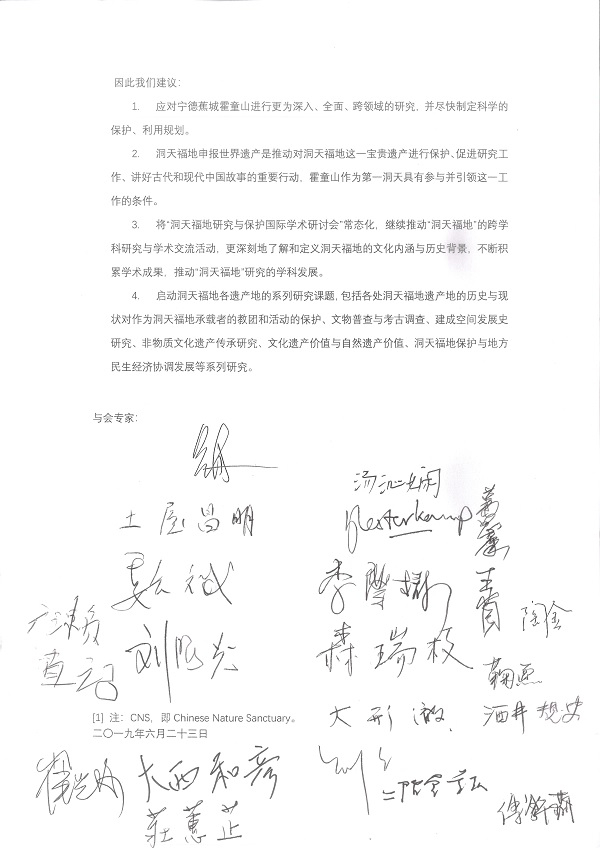 因此我们建议：
1. 应对宁德蕉城霍童山进行更为深入、全面、跨领域的研究，并尽快制定科学的
保护、利用规划。
2. 洞天福地申报世界遗产是推动对洞天福地这一宝贵遗产进行保护、促进研究工
作、讲好古代和现代中国故事的重要行动，霍童山作为第一洞天具有参与并引领这一工
作的条件。
3. 将“洞天福地研究与保护国际学术研讨会”常态化，继续推动“洞天福地”的跨学
科研究与学术交流活动，更深刻地了解和定义洞天福地的文化内涵与历史背景，不断积
累学术成果，推动“洞天福地”研究的学科发展。
4. 启动洞天福地各遗产地的系列研究课题，包括各处洞天福地遗产地的历史与现
状对作为洞天福地承载者的教团和活动的保护、文物普查与考古调查、建成空间发展史
研究、非物质文化遗产传承研究、文化遗产价值与自然遗产价值、洞天福地保护与地方
民生经济协调发展等系列研究。
与会专家：
土屋昌明
森瑞枝
陶金
[1] 注：CNS，即 Chinese Nature Sanctuary。
大形徹
酒井规史
二〇一九年六月二十三日
大西和彦
莊蕙芷